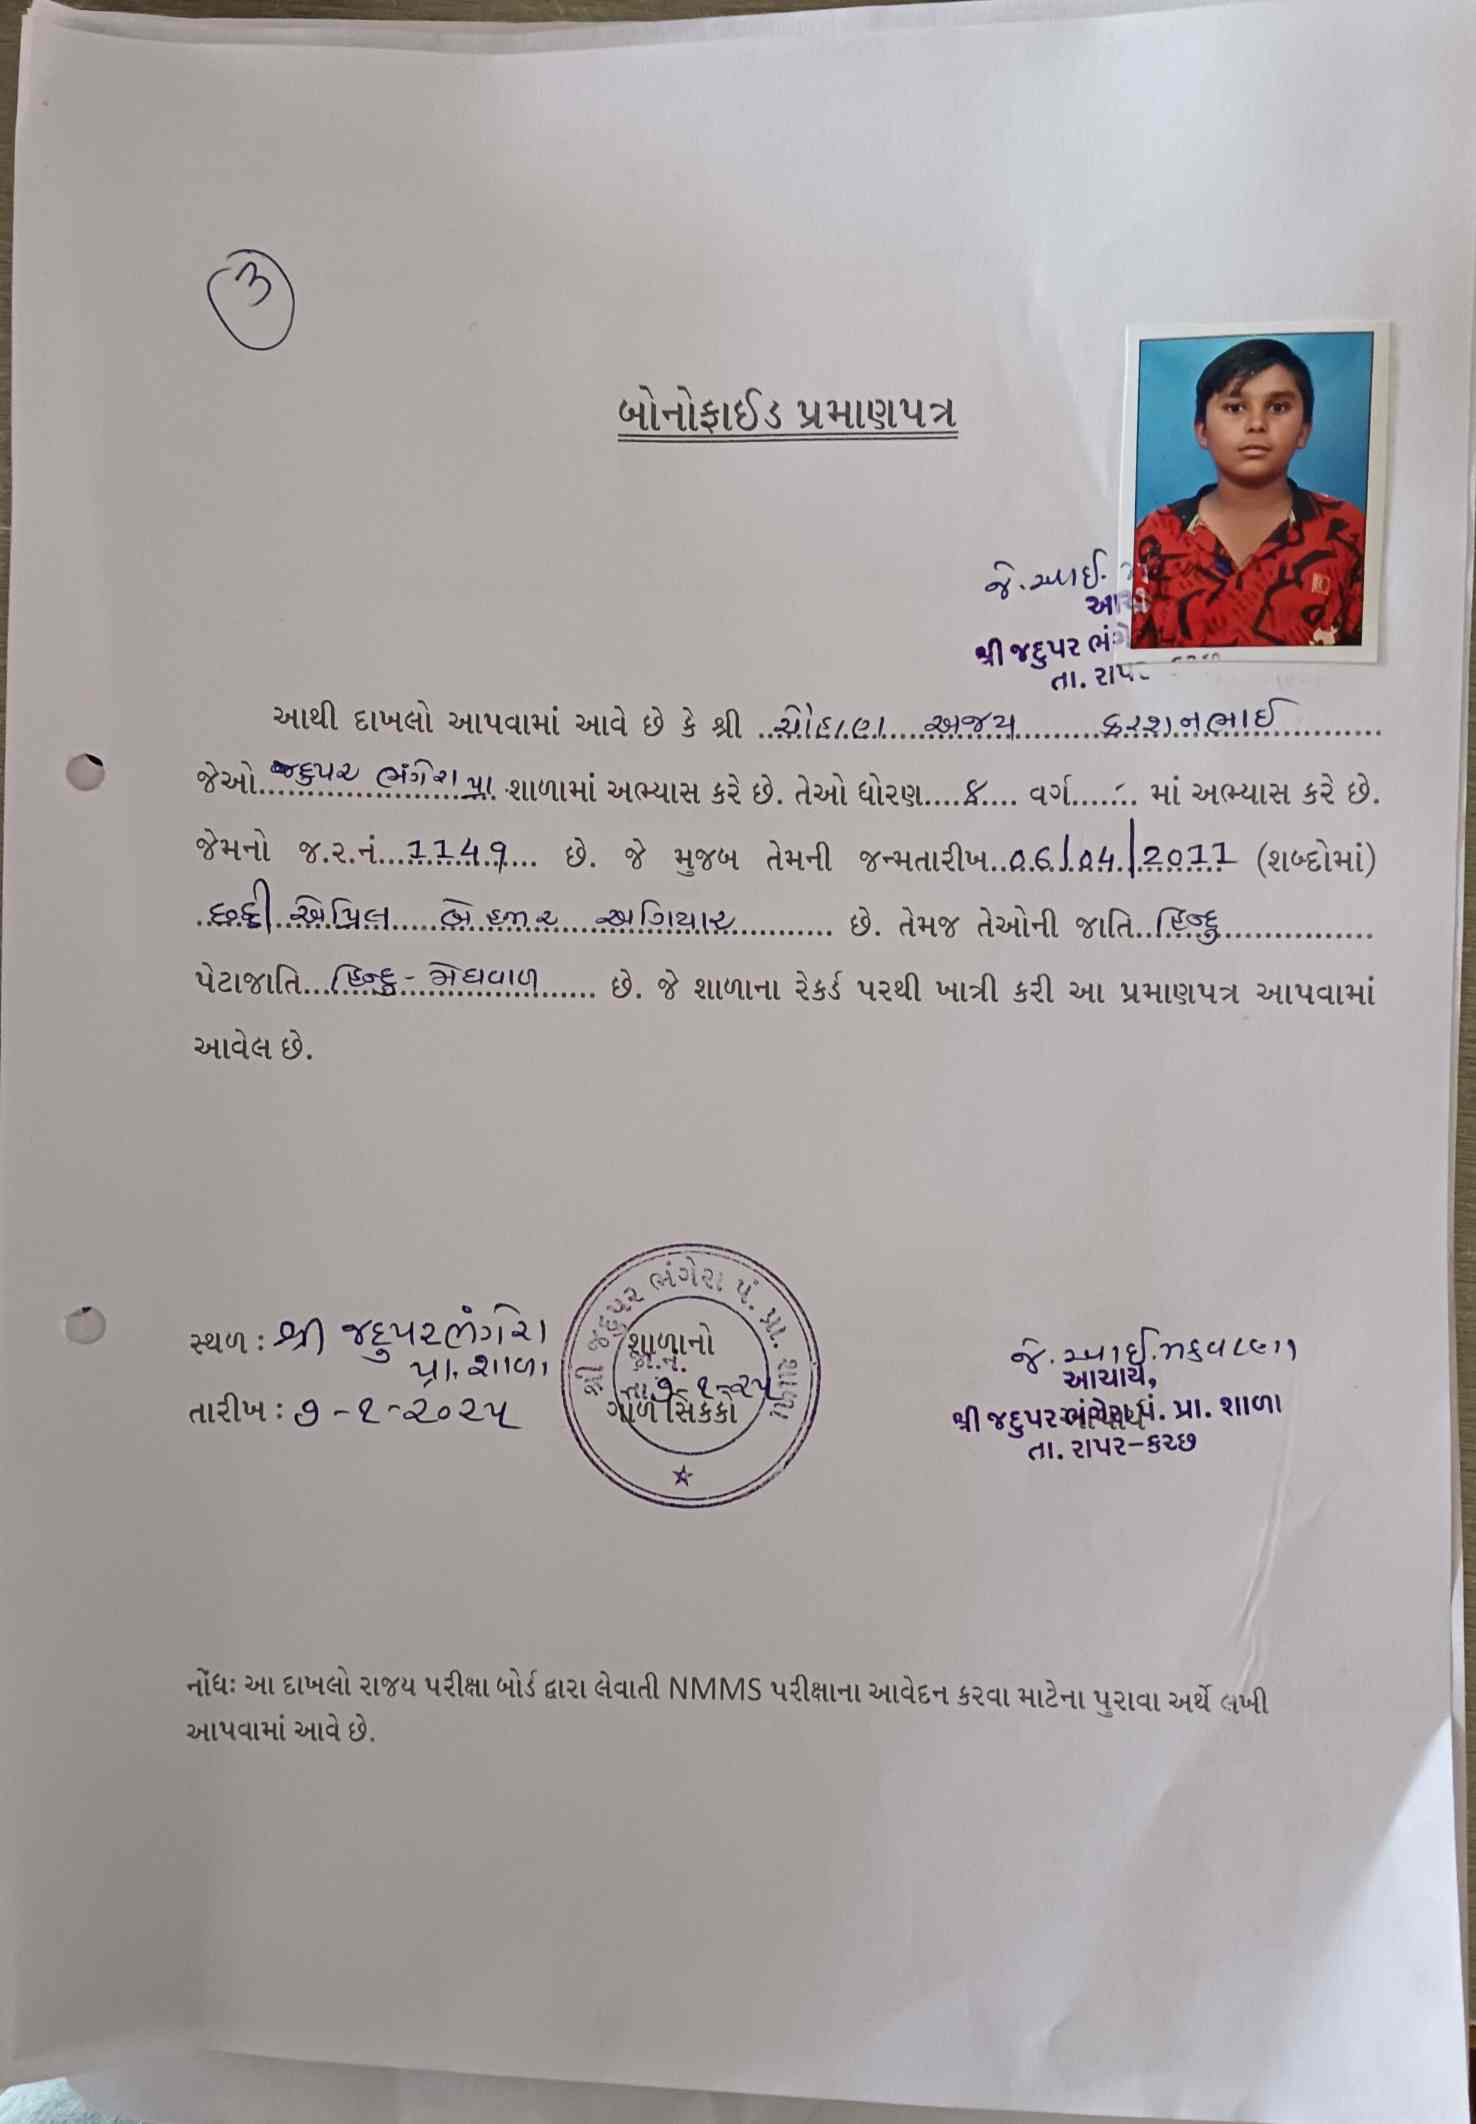 ૩
બોનોફાઈડ પ્રમાણપત્ર
જે.આઈ.
આચા
શ્રી જદુપર ભંગે
તા. રાપર
આથી દાખલો આપવામાં આવે છે કે શ્રી ..ચૌહાણ....અજય........કરશનભાઈ............
જેઓ..જદુપર ભંગેરા પ્રા. શાળામાં અભ્યાસ કરે છે. તેઓ ધોરણ....૮.... વર્ગ....-.. માં અભ્યાસ કરે છે.
જેમનો જ.ર.નં...1149... છે. જે મુજબ તેમની જન્મતારીખ..06/04/2011 (શબ્દોમાં)
..છઠ્ઠી..એપ્રિલ.....બે હજાર...અગિયાર.......... છે. તેમજ તેઓની જાતિ..હિન્દુ................
પેટાજાતિ...હિન્દુ-મેઘવાળ...... છે. જે શાળાના રેકર્ડ પરથી ખાત્રી કરી આ પ્રમાણપત્ર આપવામાં
આવેલ છે.
સ્થળ : શ્રી જદુપરભંગેરા
પ્રા. શાળા
તારીખ : ૭-૧-૨૦૨૫
શ્રી જદુપર ભંગેરા પં. પ્રા. શાળા
શાળાનો
જા.નં.
તા.૭-૧-૨૫
ગોળ સિક્કો
જે.આઈ.મકવાણા
આચાર્ય,
શ્રી જદુપર ભંગેરા પં. પ્રા. શાળા
તા. રાપર-કચ્છ
નોંધઃ આ દાખલો રાજય પરીક્ષા બોર્ડ દ્વારા લેવાતી NMMS પરીક્ષાના આવેદન કરવા માટેના પુરાવા અર્થે લખી
આપવામાં આવે છે.